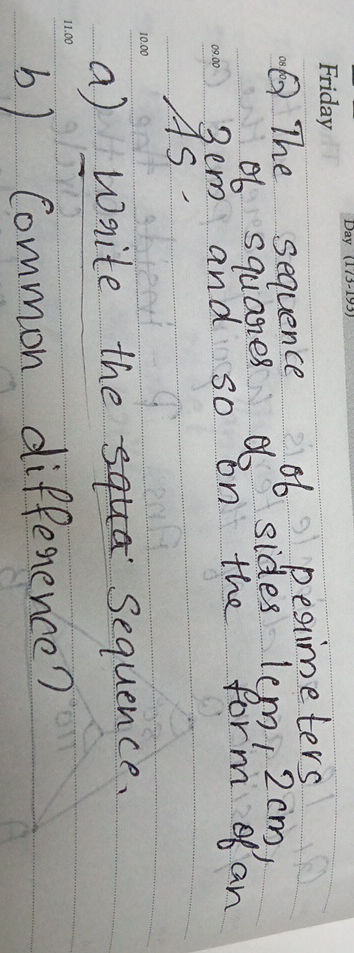 Day (173-193)
Friday
08.00
Q) The sequence of perimeters
of squares of sides 1cm, 2cm,
09.00
3cm and so on the form of an
AS.
10.00
a) Write the squa sequence.
11.00
b) Common difference?